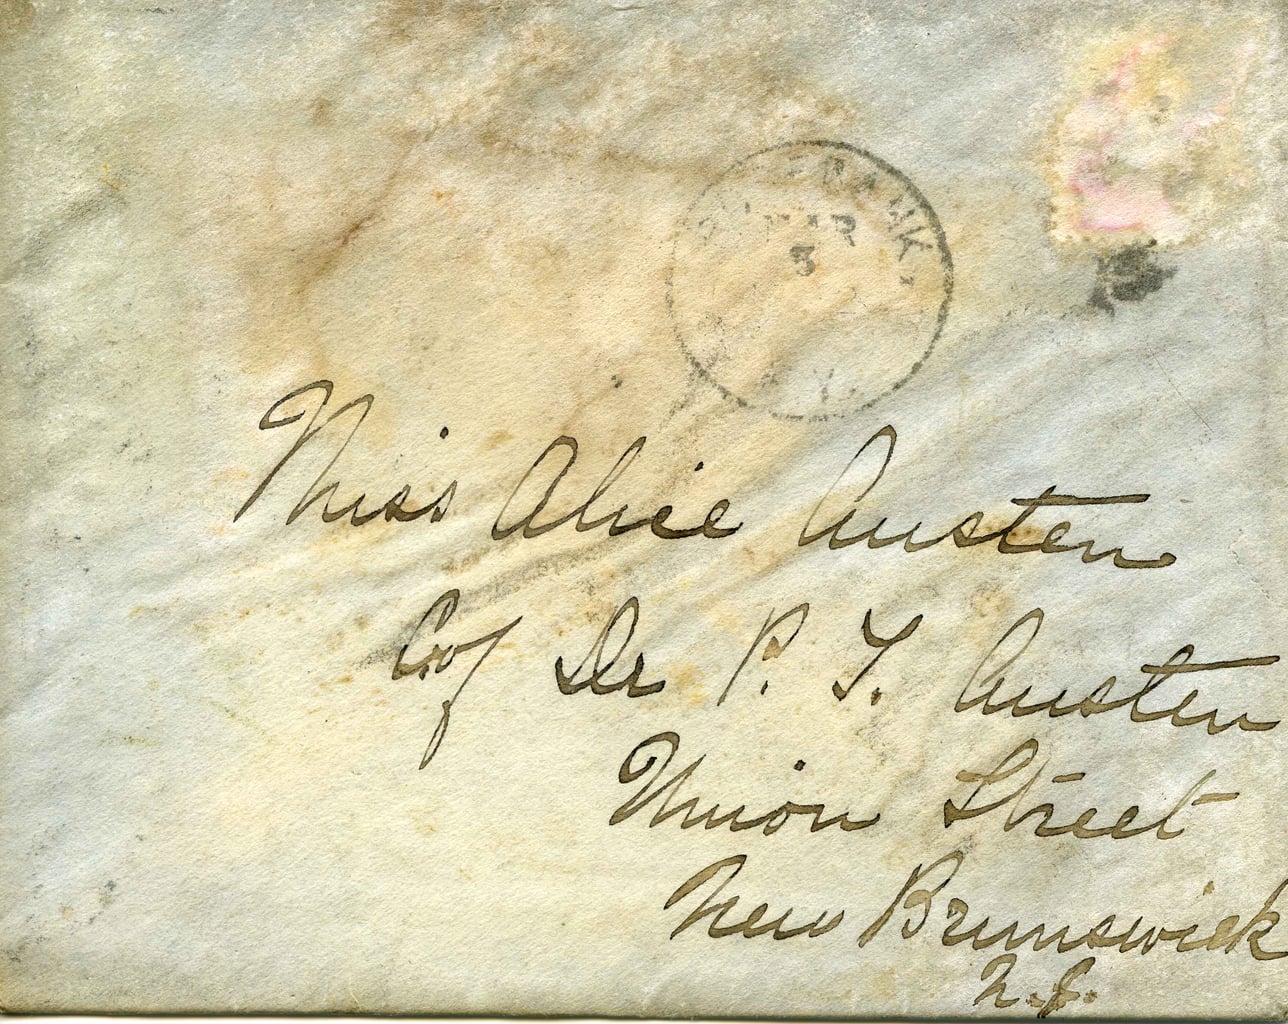 MAR
3
Miss Alice Austen
C/of Dr P. T. Austen
Union Street
New Brunswick
N.J.